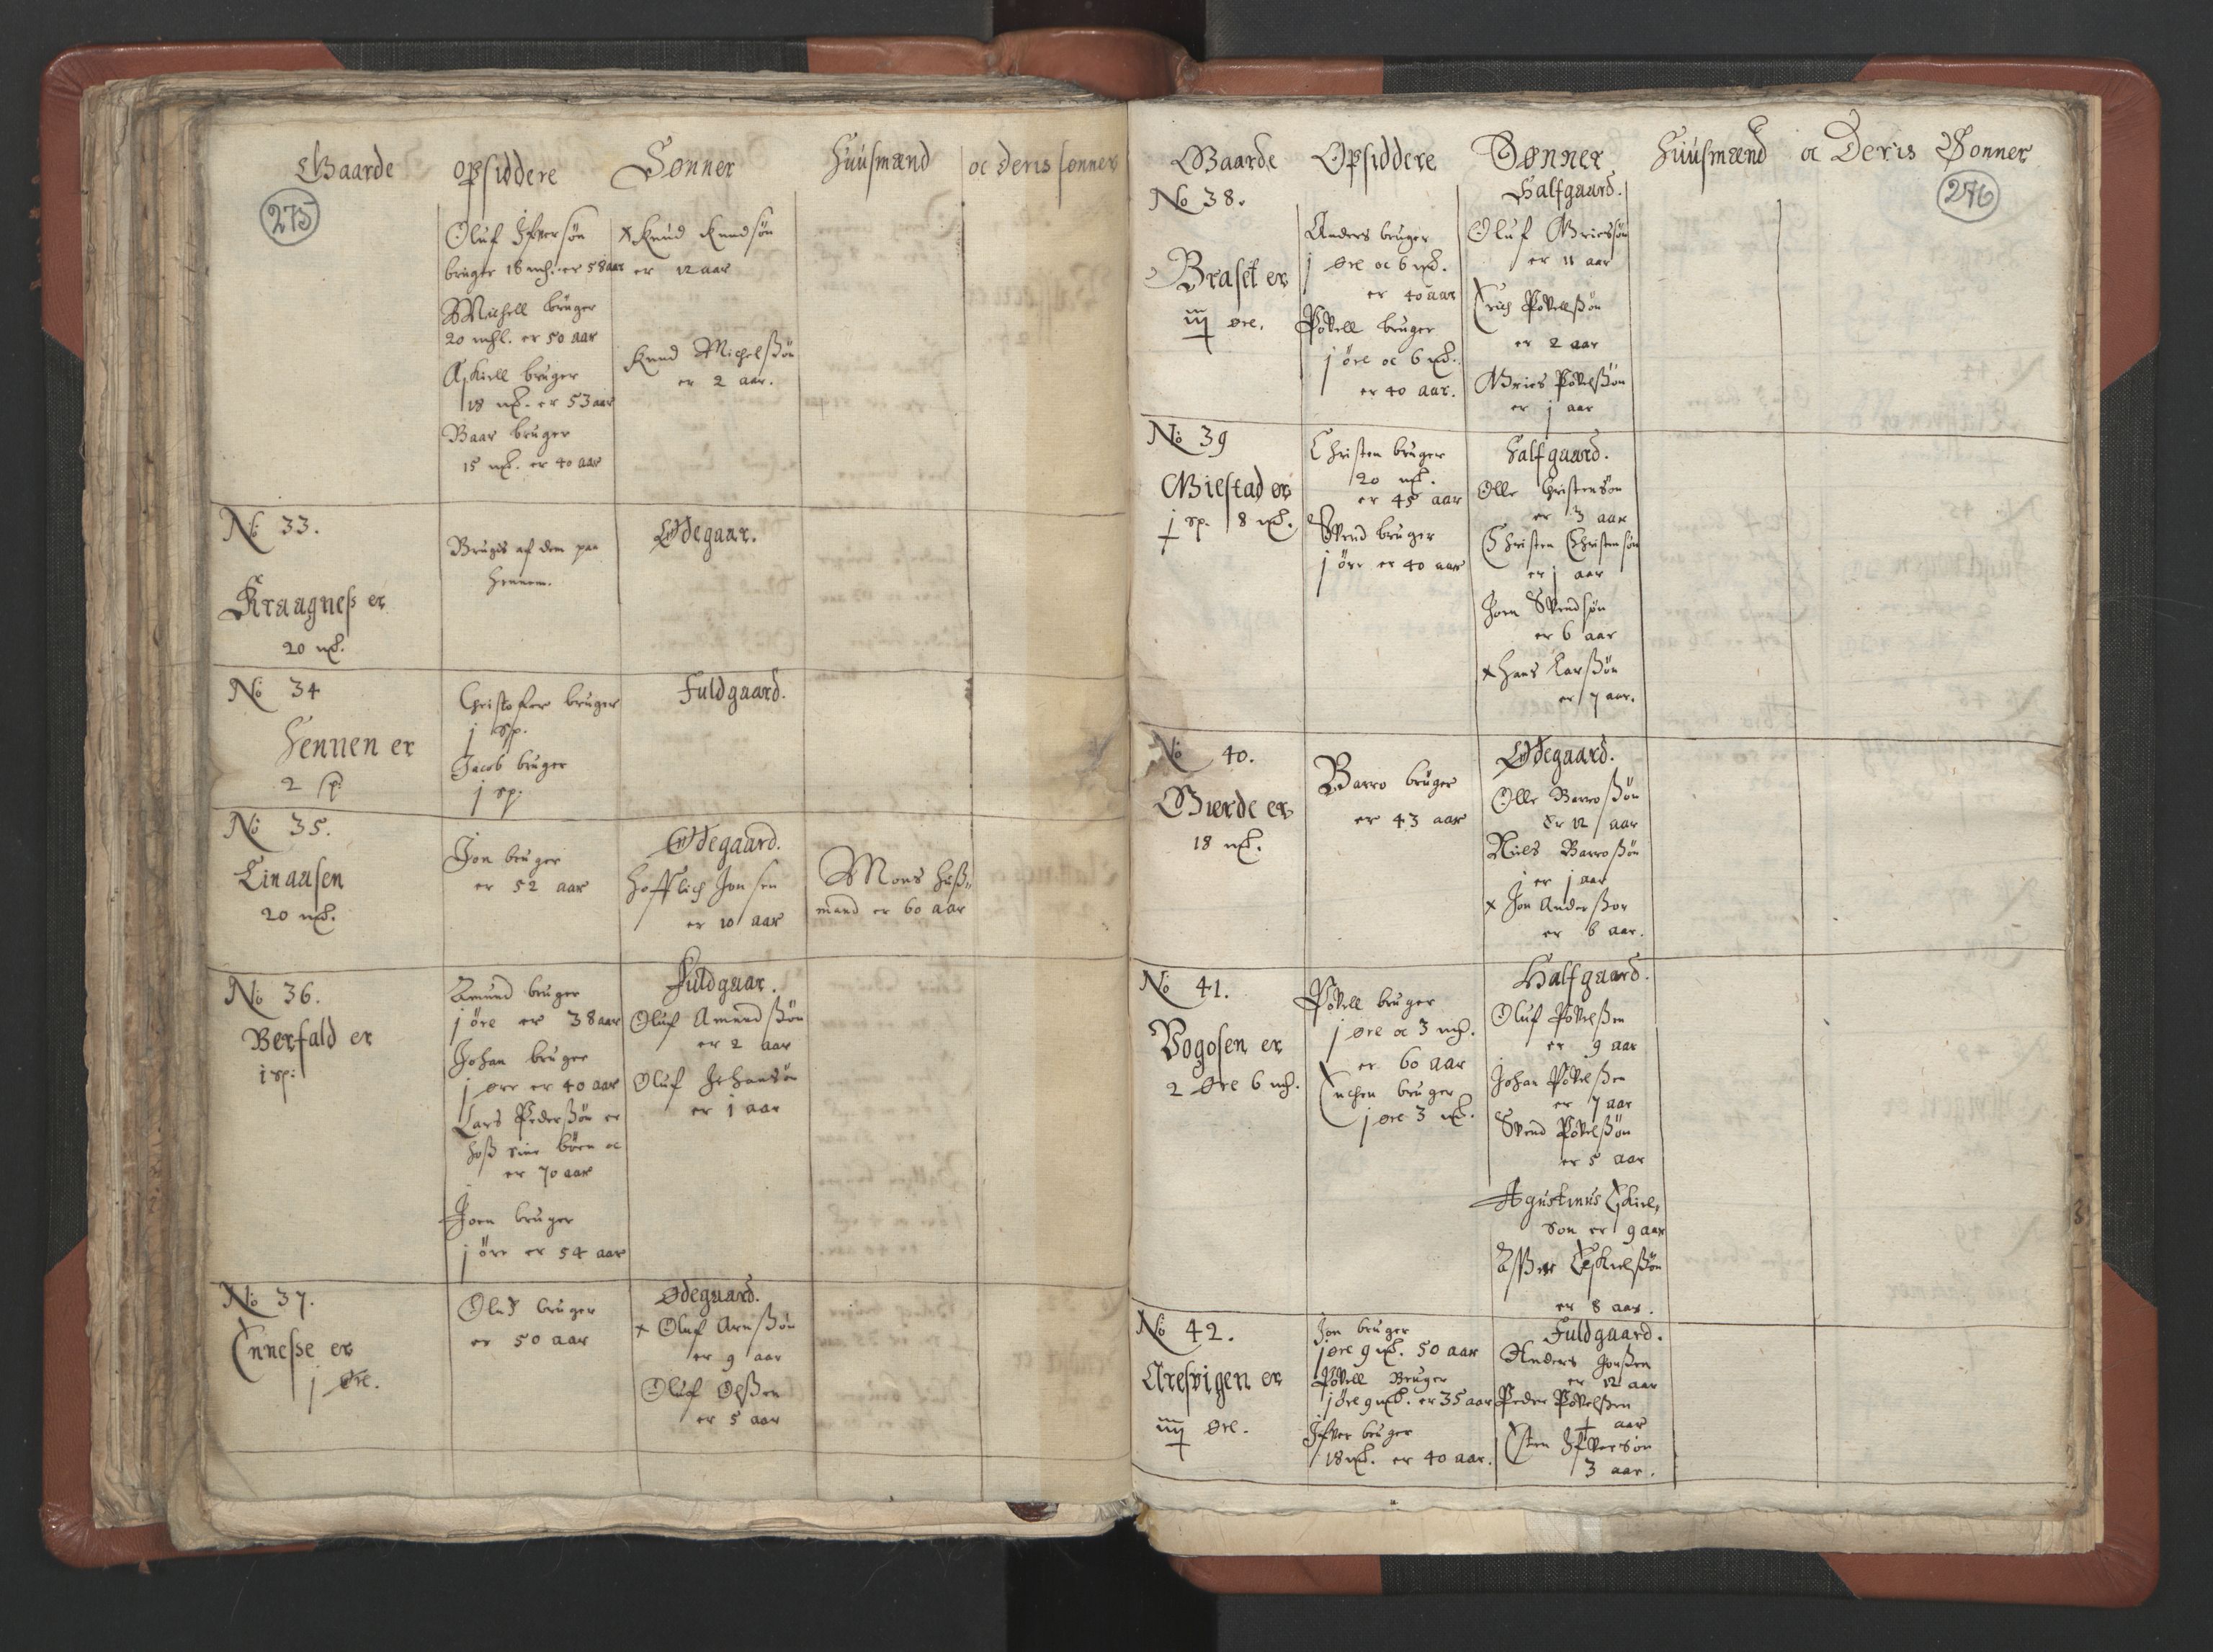 Gaarde opsiddere Sønner Huusmænd oc deris sønner
275
Oluf Ifversøn
bruger 18 mk. er 58 aar
Michell bruger
20 mk. er 50 aar
Askiell bruger
18 mk. er 53 aar
Baar bruger
15 mk. er 40 aar
x Knud Knudsøn
er 12 aar
Knud Michelsøn
er 2 aar.
No 33.
Kraagness er
20 mk.
Bruges af dem paa
Hennem.
Ødegaar.
No 34
Hennen er
2 sp.
Christofer bruger
j sp.
Jacob bruger
j sp.
Fuldgaard.
No 35.
Einausen
20 mk.
Jon bruger
er 52 aar
Ødegaard.
Hofflich Jonsen
er 10 aar
Mons Huß-
mand er 60 aar
No 36.
Berfald er
j sp:
Amund bruger
j øre er 38 aar
Johan bruger
j øre er 40 aar
Lars Pederßøn er
hoß sine børn oc
er 70 aar
Joen bruger
j øre er 54 aar
Fuldgaar.
Oluf Amundßøn
er 2 aar
Oluf Johansøn
er 1 aar
No 37.
Ennesse er
j øre.
Oluf bruger
er 50 aar
Ødegaard.
x Oluf Arnßøn
er 9 aar
Oluf Olßen
er 5 aar
Gaarde Opsiddere Sønner Huusmænd oc Deris Sønner
276
No 38.
Braset er
iij øre.
Anders bruger
j øre oc 6 mk.
er 40 aar
Povell bruger
j øre oc 6 mk.
er 40 aar.
Halfgaard.
Oluf
er 11 aar
Erich Povellßøn
er 2 aar
Povelßøn
er j aar
No 39
Gielstad er
j sp. 8 mk.
Christen bruger
20 mk.
er 45 aar
Svend bruger
j øre er 40 aar
Halfgaard.
Olle Christensøn
er 3 aar
Christen Christensøn
er j aar
Joen Svendsøn
er 6 aar
x Hans Larßøn
er 7 aar.
No 40.
Giærde er
18 mk.
Barro bruger
er 43 aar
Ødegaard.
Olle Barroßøn
er 12 aar
Niels Barroßøn
er j aar
x Jon Anderßøn
er 6 aar.
No 41.
Vogosen er
2 Øre 6 mk.
Povell bruger
j øre oc 3 mk.
er 60 aar
Enchen bruger
j øre 3 mk.
Halfgaard.
Oluf Povelßen
er 9 aar
Johan Povelßen
er 7 aar
Svend Povelßøn
er 5 aar
Agustinus Eskiel-
son er 9 aar
Aßer Eskielßøn
er 8 aar.
No 42.
Aresvigen er
iiij øre.
Jon bruger
j øre 9 mk. 50 aar
Povell Bruger
j øre 9 mk. er 35 aar
Ifver bruger
18 mk. er 40 aar.
Fuldgaard.
Anders Jonßen
er 12 aar
Peder Povelßen
j aar
Esten Ifversøn
3 aar.